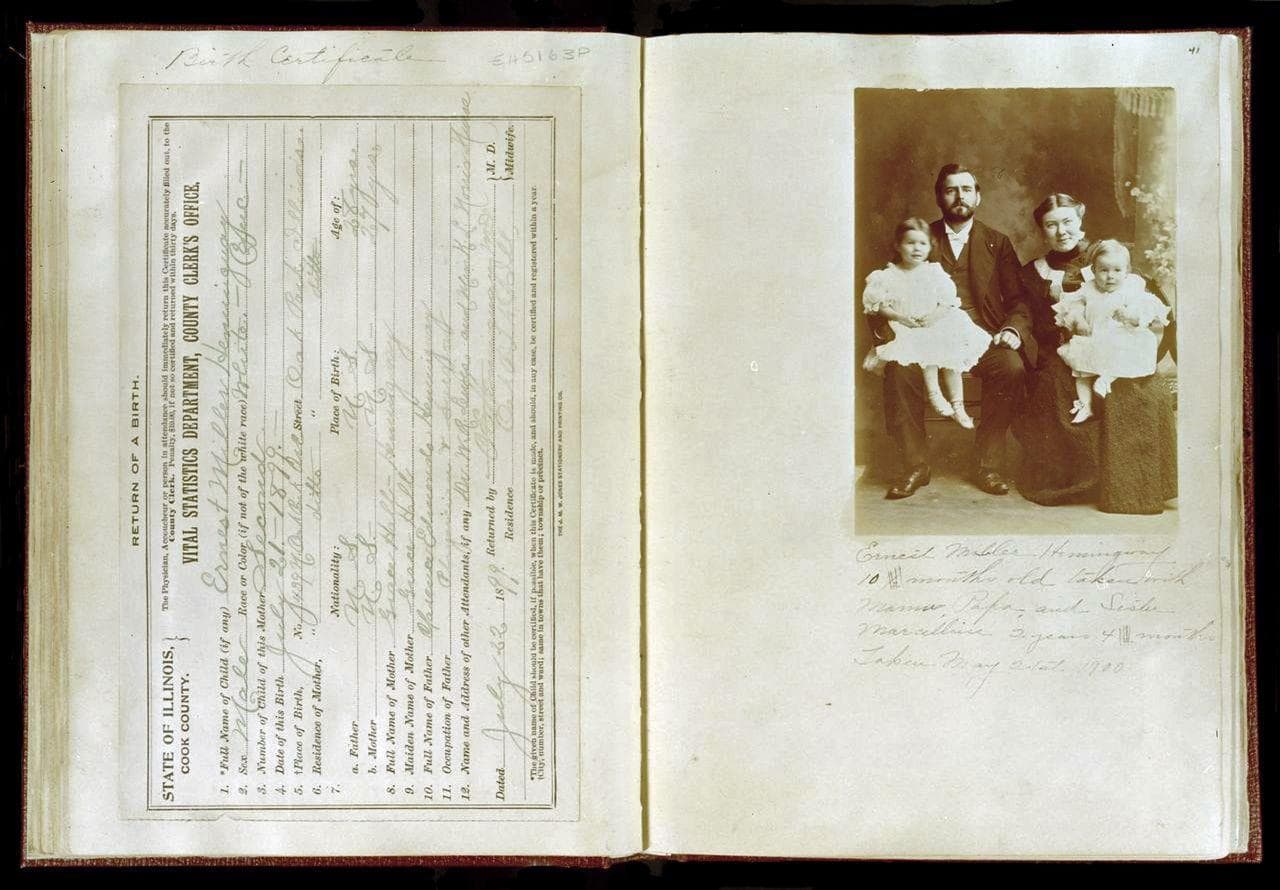 Birth Certificate
EH5163P
RETURN OF A BIRTH.
STATE OF ILLINOIS,
COOK COUNTY.
The Physician, Accoucheur or person in attendance should immediately return this Certificate accurately filled out, to the
County Clerk. Penalty, $10.00, if not so certified and returned within thirty days.
VITAL STATISTICS DEPARTMENT, COUNTY CLERK'S OFFICE.
1. *Full Name of Child (if any) Ernest Miller Hemingway
2. Sex Male Race or Color (if not of the white race) White
3. Number of Child of this Mother Second
4. Date of this Birth July 21 - 1899
5. †Place of Birth, No. Oak Park Ave Street Oak Park Illinois.
6. Residence of Mother, " ditto " ditto
7. Nationality: Place of Birth: Age of:
a. Father U. S. U. S. 28 yrs.
b. Mother U. S. U. S. 27 yrs.
8. Full Name of Mother Grace Hall Hemingway
9. Maiden Name of Mother Grace Hall
10. Full Name of Father Clarence Edmonds Hemingway
11. Occupation of Father Physician &
12. Name and Address of other Attendants, if any Dr. W. R. and Nurse
Dated July 22 1899. Returned by M. D.
Midwife.
Residence
*The given name of Child should be certified, if possible, when this Certificate is made, and should, in any case, be certified and registered within a year.
†City; number, street and ward; same in towns that have them; township or precinct.
THE J. M. W. JONES STATIONERY AND PRINTING CO.
41
Ernest Miller Hemingway
10 months old taken with
Mama Papa and Sister
Marcelline 2 years 4 months
Taken May 21st. 1900